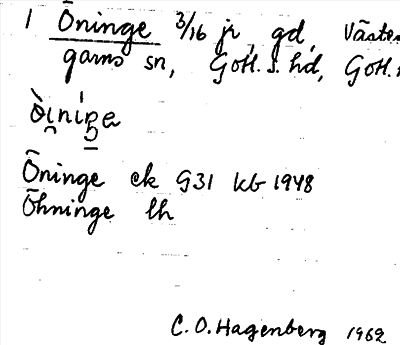 1 Öninge 3/16 jr, gd, Väste
garns sn, Gotl. s. hd, Gotl.
Öninge ek G31 kb 1948
Öhninge lh
C. O. Hagenberg 1962